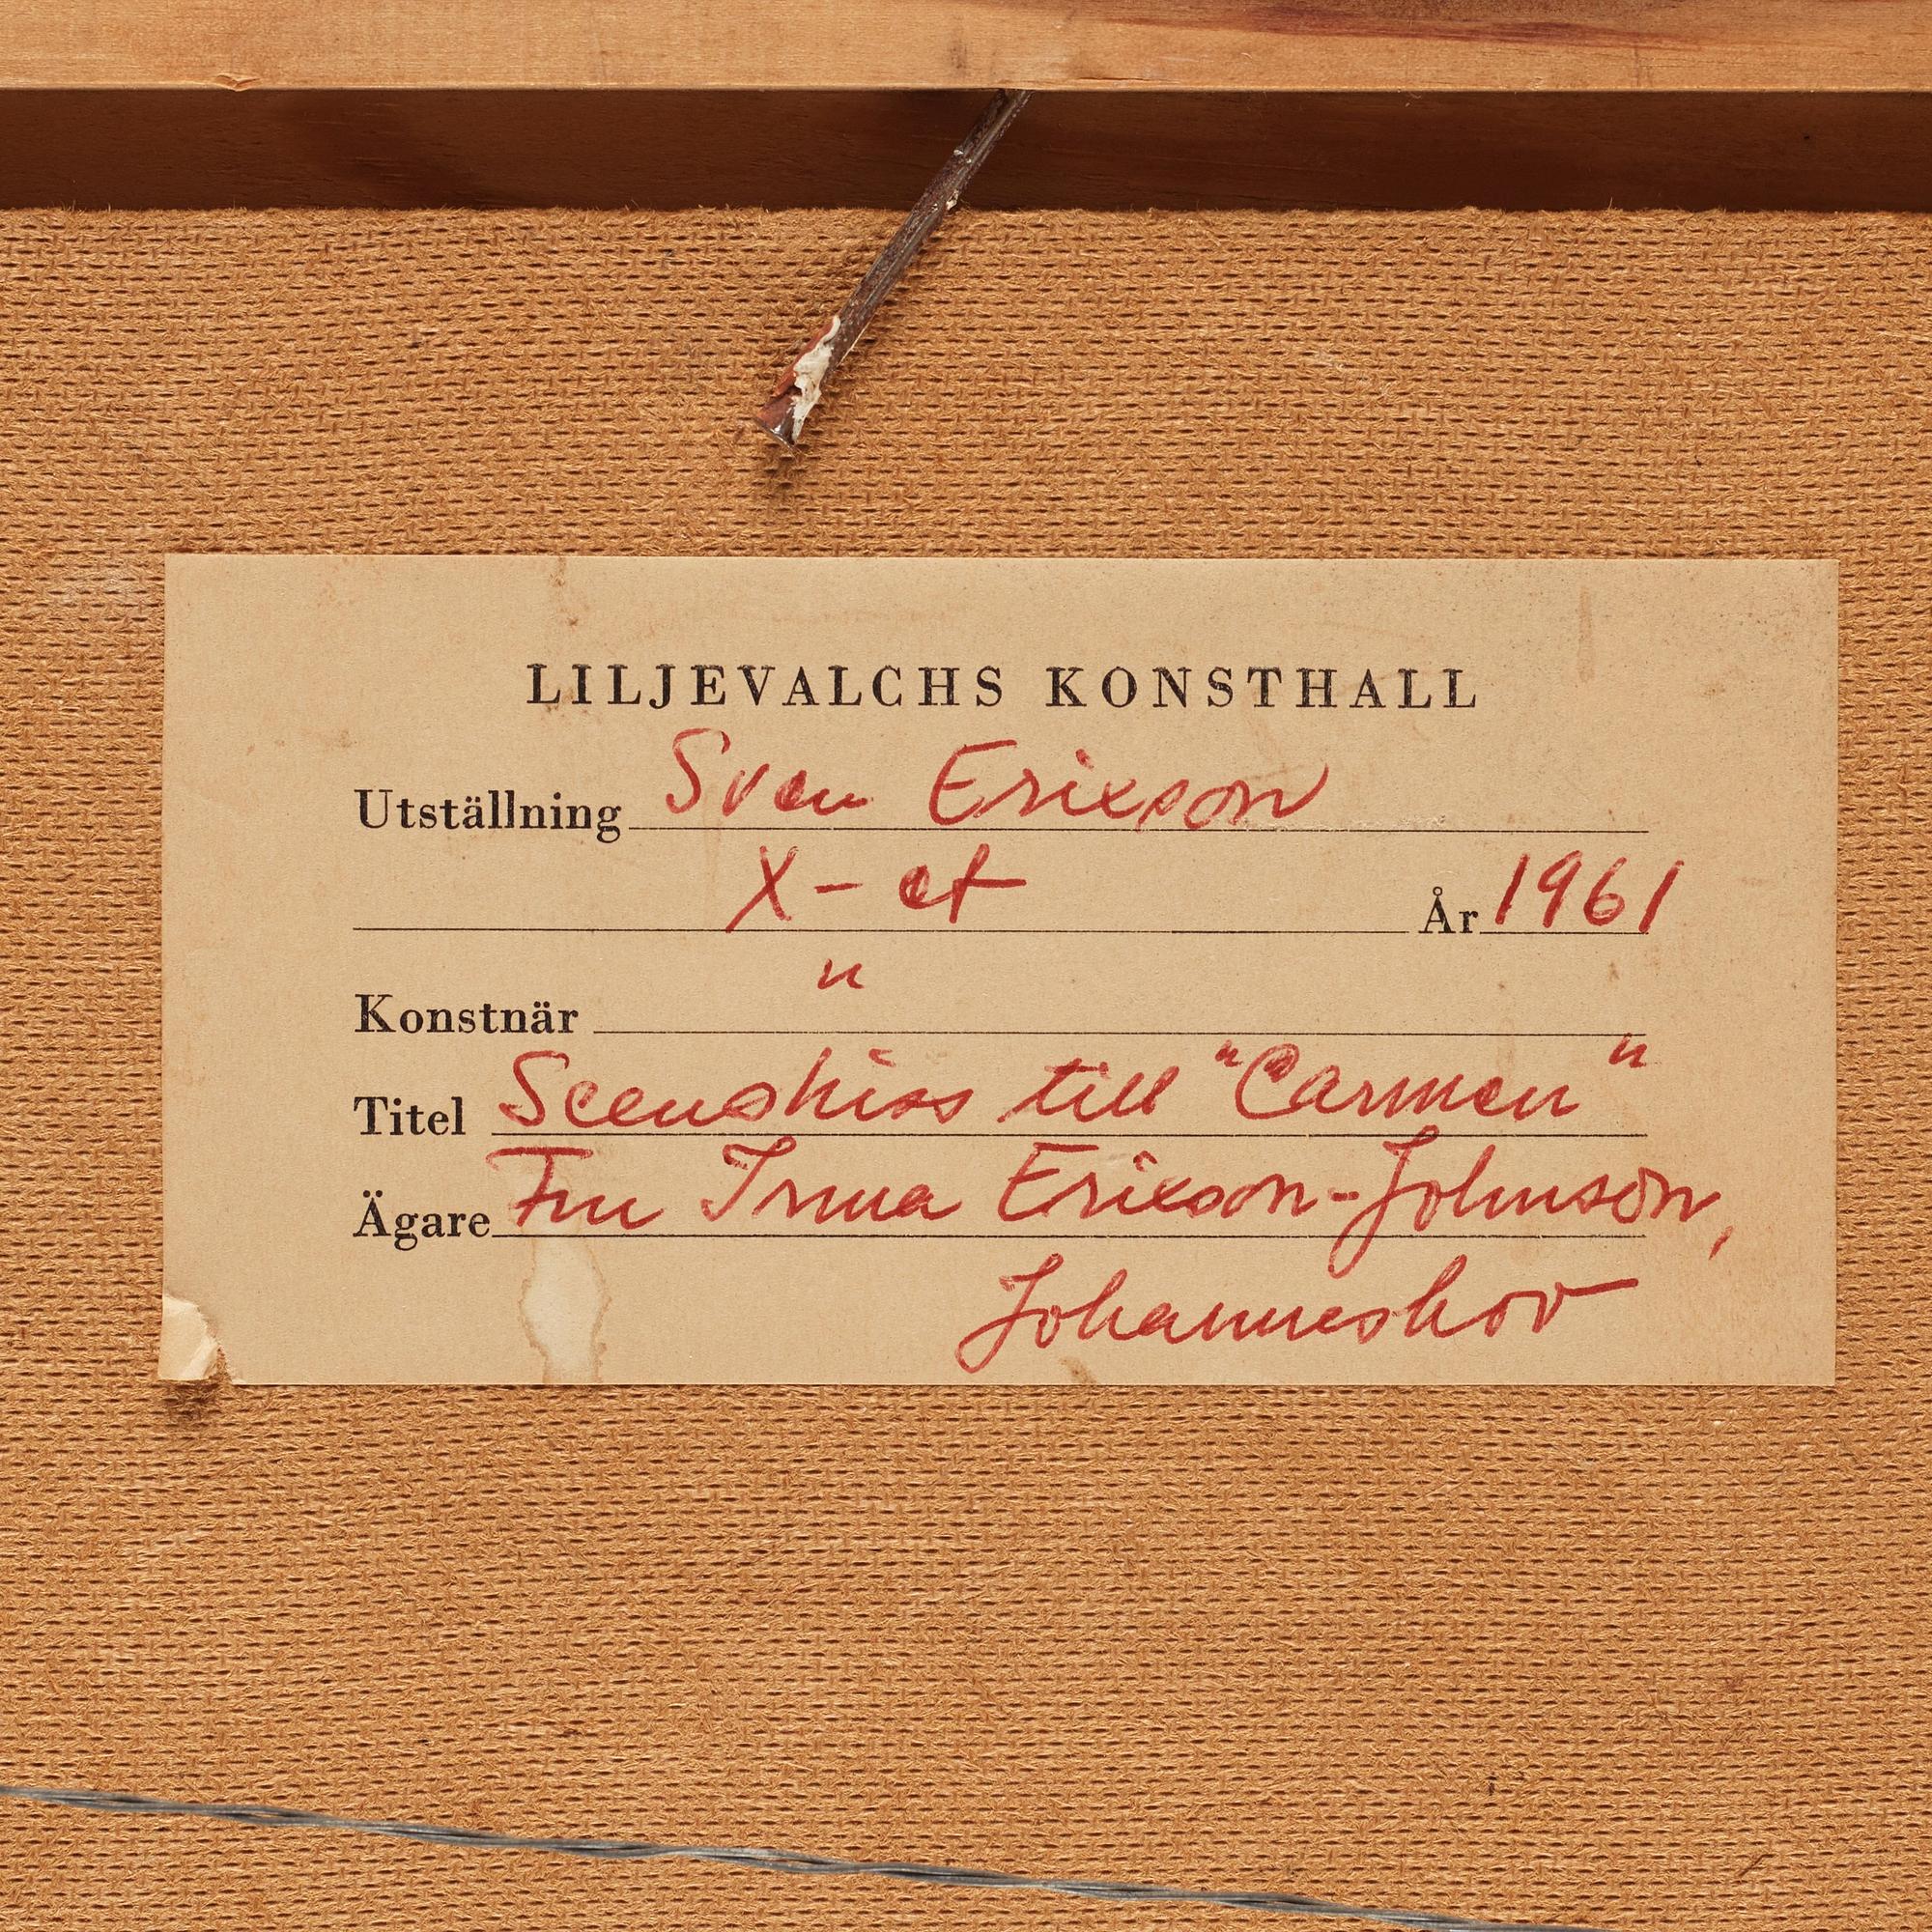 LILJEVALCHS KONSTHALL
Utställning Sven Erixson
X-et År 1961
Konstnär "
Titel Scenskiss till "Carmen"
Ägare Fru Irma Erixson-Johnson,
Johanneshov